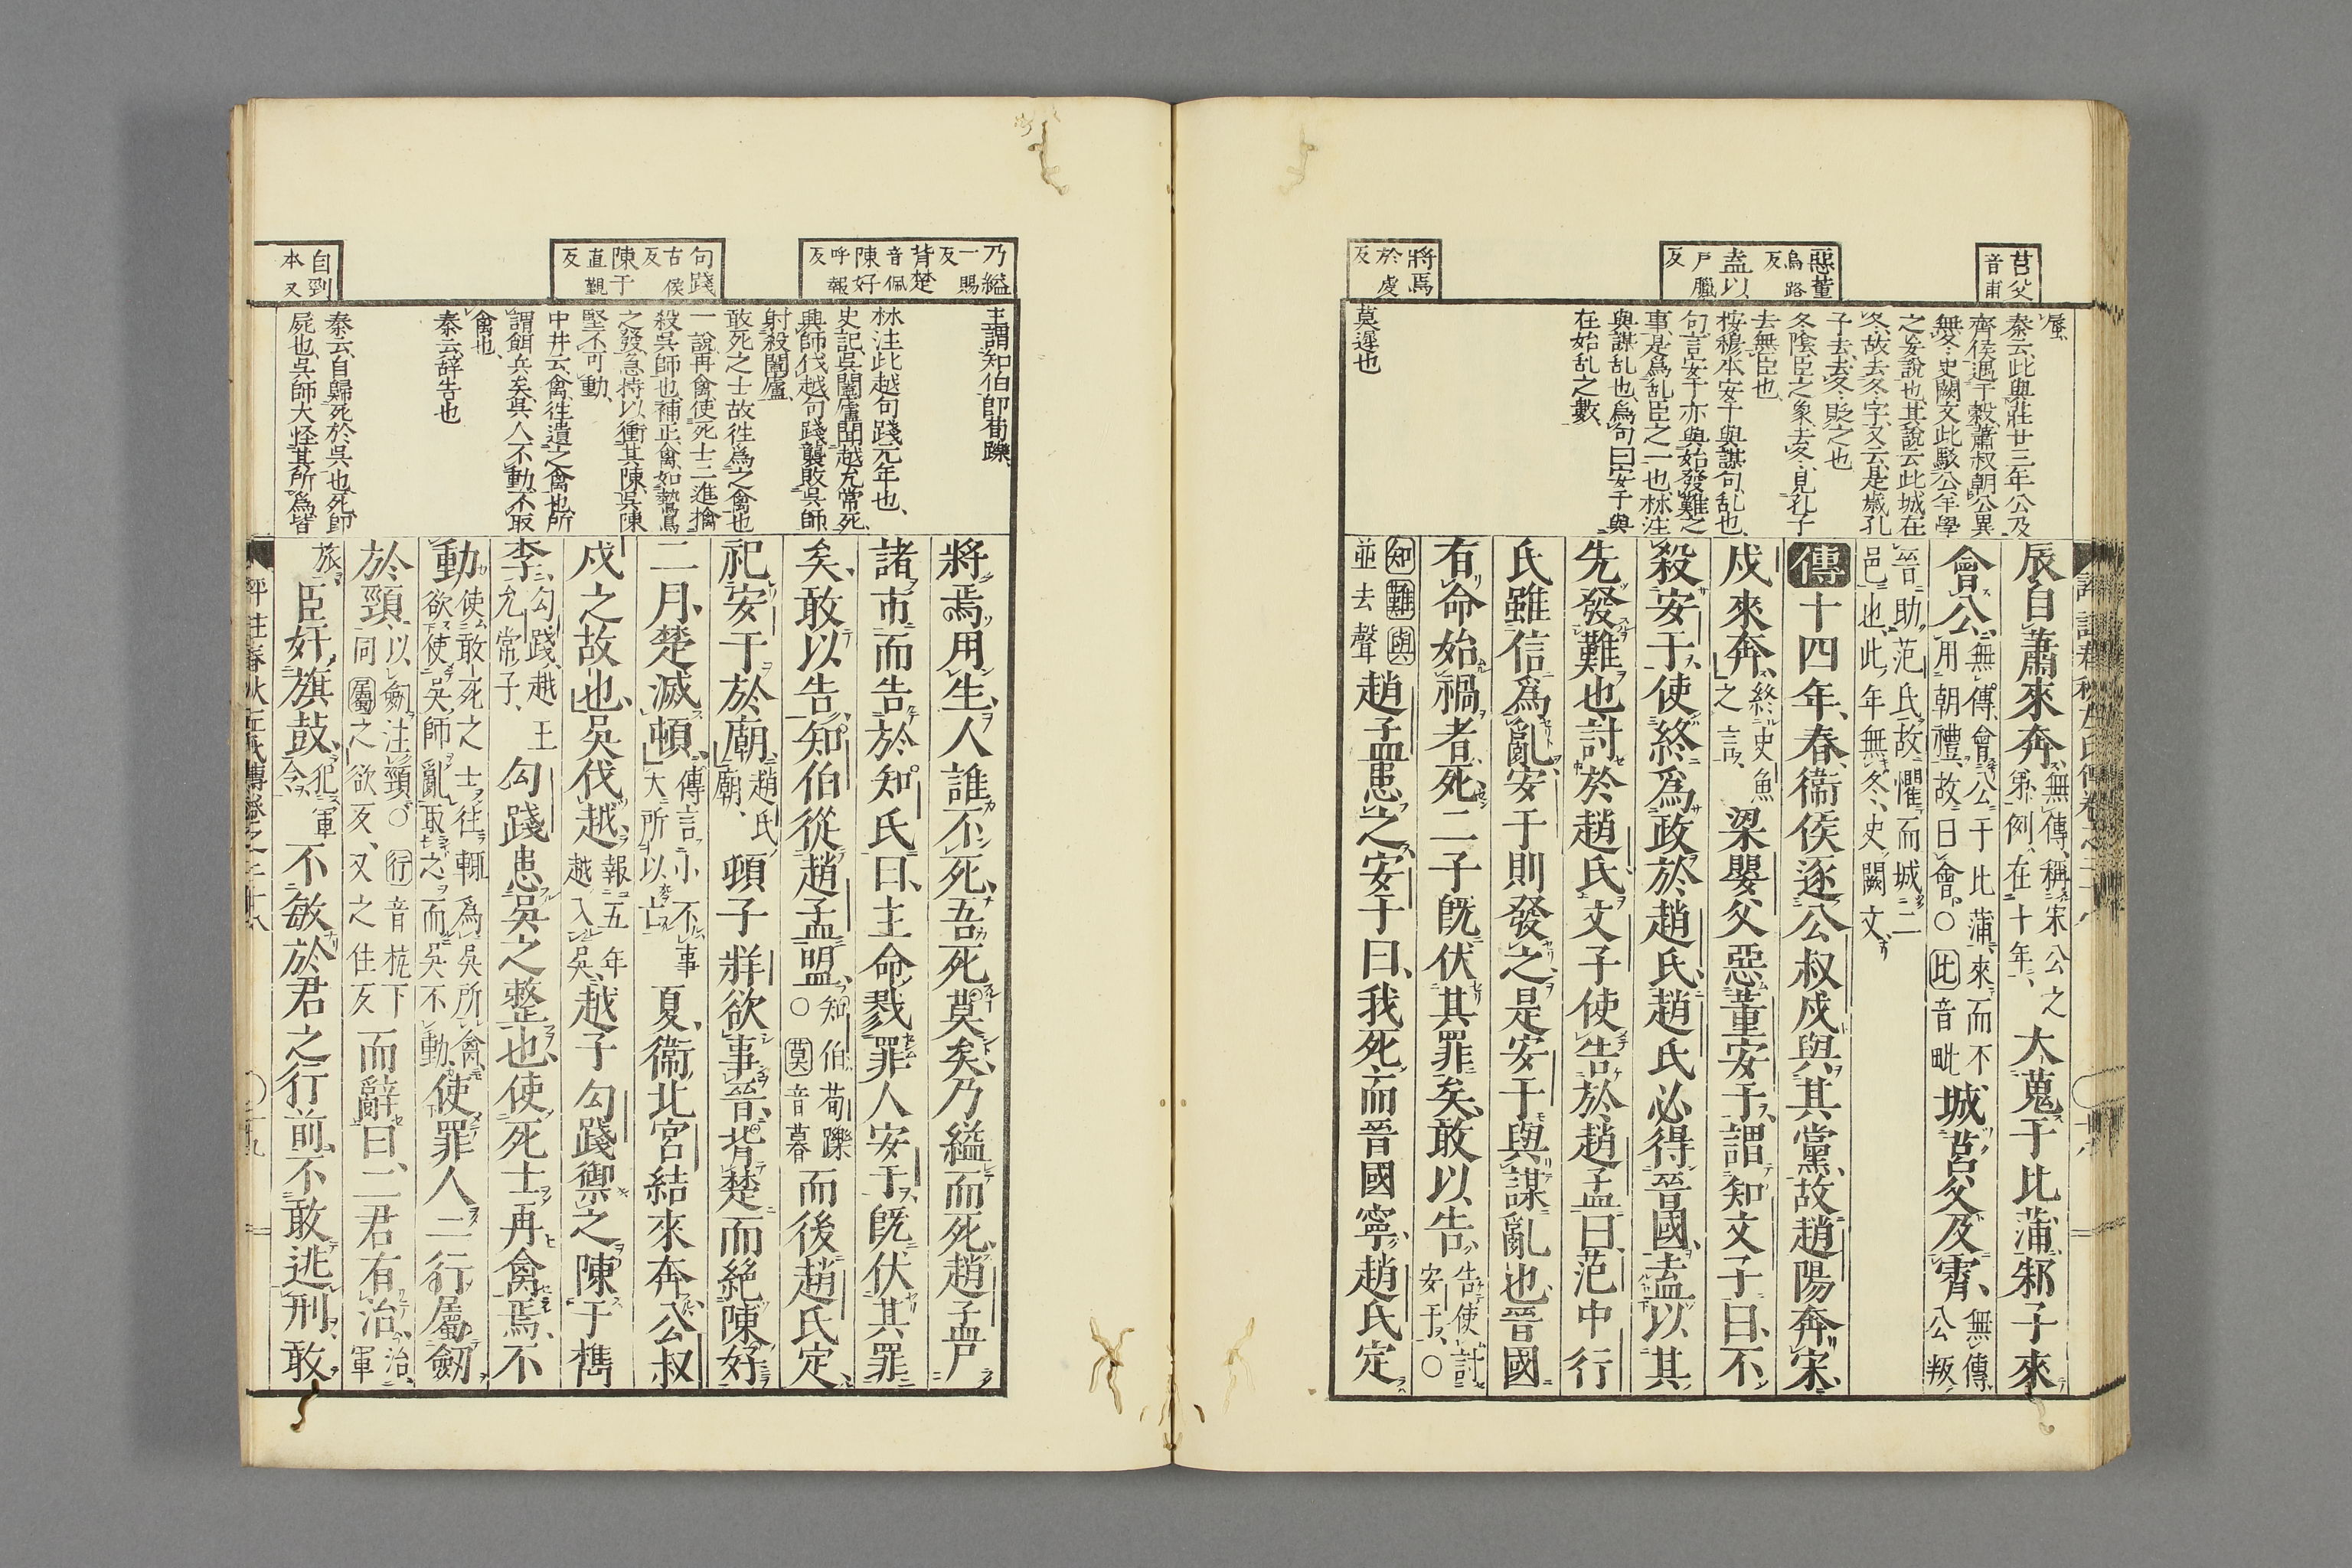 莒父
音甫
惡董
烏路
反
盍以
戸臘
反
將焉
於虔
反
蜃
秦云、此與莊廿三年公及
齊侯遇于穀蕭叔朝公異
無冬、史闕文、此駁公羊學
之妄說也、其說云此城在
冬、故去冬字、又云是歲孔
子去、去冬、貶之也
冬陰臣之象、去冬、見孔子
去無臣也
按穆本安于與謀句、乱也、
句、言安于亦與始發難之
事、是爲乱臣之一也、林注
與謀乱也、爲句曰安于與
在始乱之數、
莫遲也
辰自蕭來奔、無傳、稱宋公之弟、例在十年、大蒐于比蒲、邾子來
會公、無傳、會公于比蒲、來而不用朝禮、故曰會、○比音毗城莒父及霄、無傳、公叛
晉助范氏、故懼而城二邑也、此年無冬、史闕文、
傳十四年、春、衞侯逐公叔戍與其黨、故趙陽奔宋、
戍來奔、終史魚之言、梁嬰父惡董安于、謂知文子曰、不
殺安于、使終爲政於趙氏、趙氏必得晉國、盍以其
先發難也、討於趙氏、文子使告於趙孟曰、范中行
氏雖信爲亂、安于則發之、是安于與謀亂也、晉國
有命、始禍者死、二子既伏其罪矣、敢以告、告使討安于、○
知難與並去聲趙孟患之、安于曰、我死而晉國寧、趙氏定、
乃縊
一賜
反
背楚
音佩
陳好
呼報
反
句踐
古侯
反
陳于
直覲
反
自剄
本又
主謂知伯卽荀躒、
林注此越句踐元年也、
史記、吳闔廬聞越允常死、
興師伐越、句踐襲敗吳師
射殺闔廬、
敢死之士故往爲之禽也
一說、再禽、使死士二進擒
殺吳師也、補正、禽如鷙鳥
之發、急持以衝其陳、吳陳
堅不可動、
中井云、禽、往遺之禽也、所
謂餌兵矣、吳人不動、不取
禽也、
秦云、辞告也
秦云、自歸死於吳也、死卽
屍也、吳師大怪其所爲、皆
將焉用生、人誰不死、吾死莫矣、乃縊而死、趙孟尸
諸市而告於知氏曰、主命戮罪人安于、既伏其罪
矣、敢以告、知伯從趙孟盟、知伯荀躒○莫音暮而後趙氏定、
祀安于於廟、趙氏廟、頓子牂欲事晉、背楚而絕陳好
二月、楚滅頓、傳言小不事大、所以亡夏、衞北宮結來奔、公叔
戍之故也、吳伐越、報五年越入吳、越子勾踐禦之、陳于檇
李、勾踐、越王允常子、勾踐患吳之整也、使死士再禽焉、不
動、使敢死之士往、輒爲吳所禽、欲使吳師亂取之、而吳不動、使罪人三行、屬劒
於頸、以劒注頸○行音杭下同屬之欲反、又之住反而辭曰、二君有治、治軍
旅、臣奸旗鼓、犯軍令、不敏於君之行前、不敢逃刑、敢